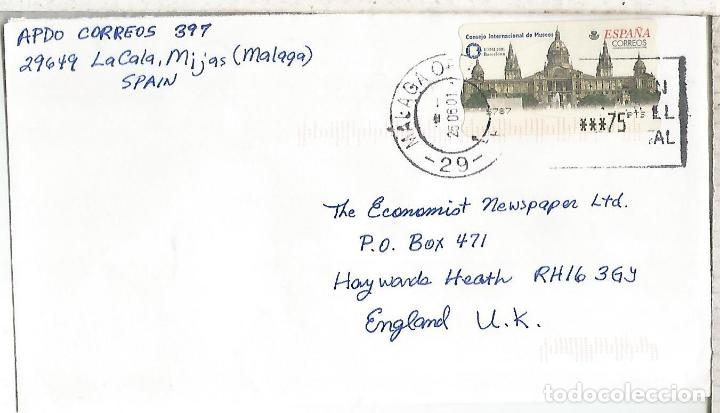 APDO CORREOS 397
29649 La Cala, Mijas (Malaga)
SPAIN
Consejo Internacional de Museos
ESPAÑA
CORREOS
Barcelona
***75 pts
MALAGA
-29-
The Economist Newspaper Ltd.
P.O. Box 471
Haywards Heath RH16 3GY
England U.K.
todocoleccion.net